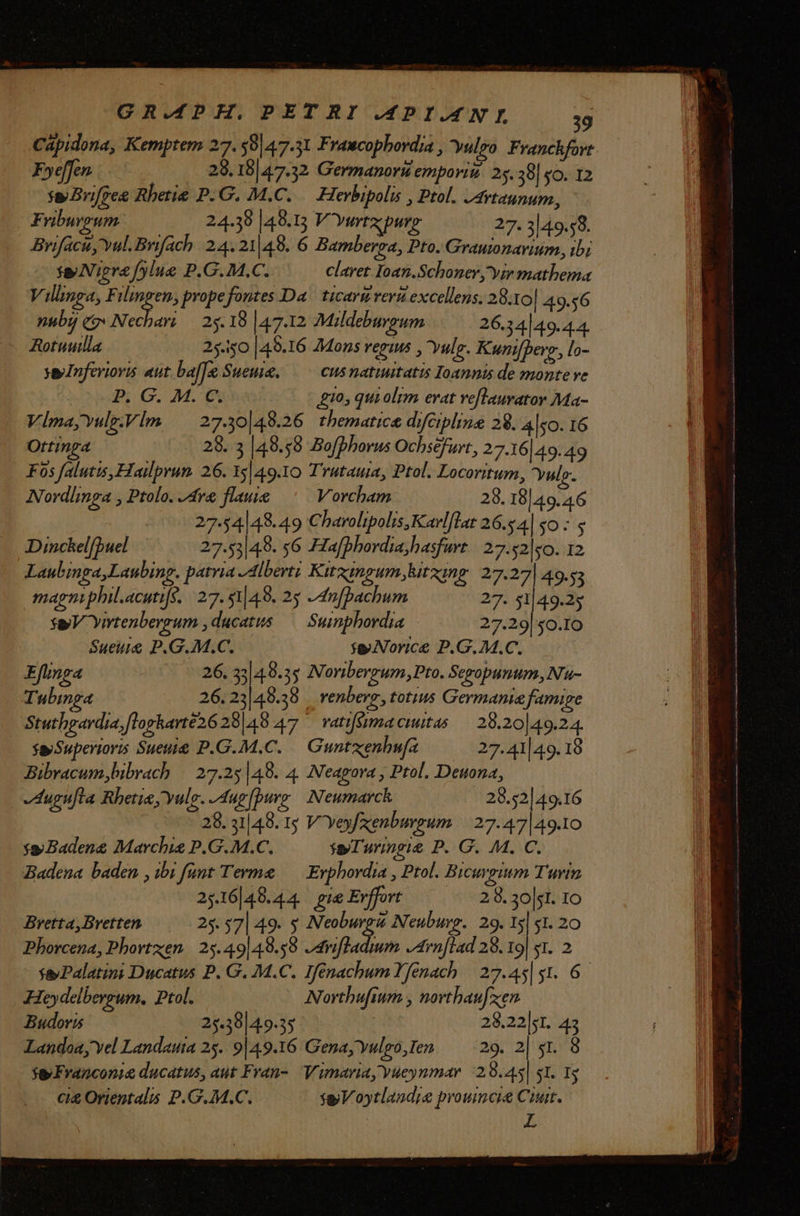 GRAPH. PETRI APIANI. 39
Cāpidona, Kemptem 27. 58|47.31
Fyessen 28. 18|47.32
Brisgeæ Rhetiæ P.G. M.C.
Friburgum 24.38|48.13
Brisacū, vul. Brisach 24. 21|48. 6
Nigræ sylue P.G.M.C.
Villinga, Filingen, prope fontes Da
nubij & Nechari 25. 18|47.12
Rotuuilla 25.50|48.16
Inferioris aut bassæ Sueuiæ,
P. G. M. C.
Vlma, vulg. Vlm 27.30|48.26
Ottinga 28. 3|48.58
Fōs salutis, Hailprun 26. 15|49.10
Nordlinga, Ptolo. Aræ flauiæ
27.54|48.49
Dinckelspuel 27.53|48. 56
Laubinga, Laubing. patria Alberti
magni phil. acutiss. 27. 51|48. 25
VVirtenbergum, ducatus
Sueuiæ P.G.M.C.
Eslinga 26. 33|48.35
Tubinga 26. 23|48.38
Stuthgardia, stogkartē 26 28|48 47
Superioris Sueuiæ P.G.M.C.
Bibracum, bibrach 27.25|48. 4
Augusta Rhetiæ, vulg. Augspurg
28. 31|48. 15
Badenæ Marchiæ P.G.M.C.
Badena baden, ibi sunt Terme
25.16|48.44
Bretta, Bretten 25. 57|49. 5
Phorcena, Phortzen 25.49|48.58
Palatini Ducatus P. G. M.C.
Heydelbergum. Ptol.
Budoris 25.38|49.35
Landoa, vel Landauia 25. 9|49.16
Franconiæ ducatus, aut Fran-
ciæ Orientalis P.G.M.C.
Francophordia, vulgo Franckfort
Germanorū emporiū 25. 38|50. 12
Herbipolis, Ptol. Artaunum,
VVurtzpurg 27. 3|49.58.
Bamberga, Pto. Grauionarium, ibi
claret Ioan. Schoner, vir mathema
ticarū rerū excellens. 28.10|49.56
Mildeburgum 26.34|49.44
Mons regius, vulg. Kunisperg, lo-
cus natiuitatis Ioannis de monte re
gio, qui olim erat restaurator Ma-
thematicæ disciplinæ 28. 4|50. 16
Bosphorus Ochsēfurt, 27.16|49.49
Trutauia, Ptol. Locoritum, vulg.
Vorcham 28. 18|49.46
Charolipolis, Karlstat 26.54|50: 5
Hasphordia, hasfurt 27.52|50. 12
Kitzingum, kitzing 27.27|49.53
Anspachum 27. 51|49.25
Suinphordia 27.29|50.10
Noricæ P.G.M.C.
Noribergum, Pto. Segopunum, Nu-
renberg, totius Germaniæ famige
ratissima ciuitas 28.20|49.24
Guntzenhusa 27.41|49. 18
Neagora, Ptol. Deuona,
Neumarck 28.52|49.16
VVeyszenburgum 27.47|49.10
Turingiæ P. G. M. C.
Erphordia, Ptol. Bicurgium Turin
giæ Erffort 28. 30|51. 10
Neoburgū Neuburg. 29. 15|51. 20
Aristadium Arnstad 28. 19|51. 2
Isenachum Ysenach 27.45|51. 6
Northusium, northauszen
28.22|51. 43
Gena, vulgo, Ien 29. 2|51. 8
Vimaria, vueynmar 28.45|51. 15
Voytlandiæ prouinciæ Ciuit.
L